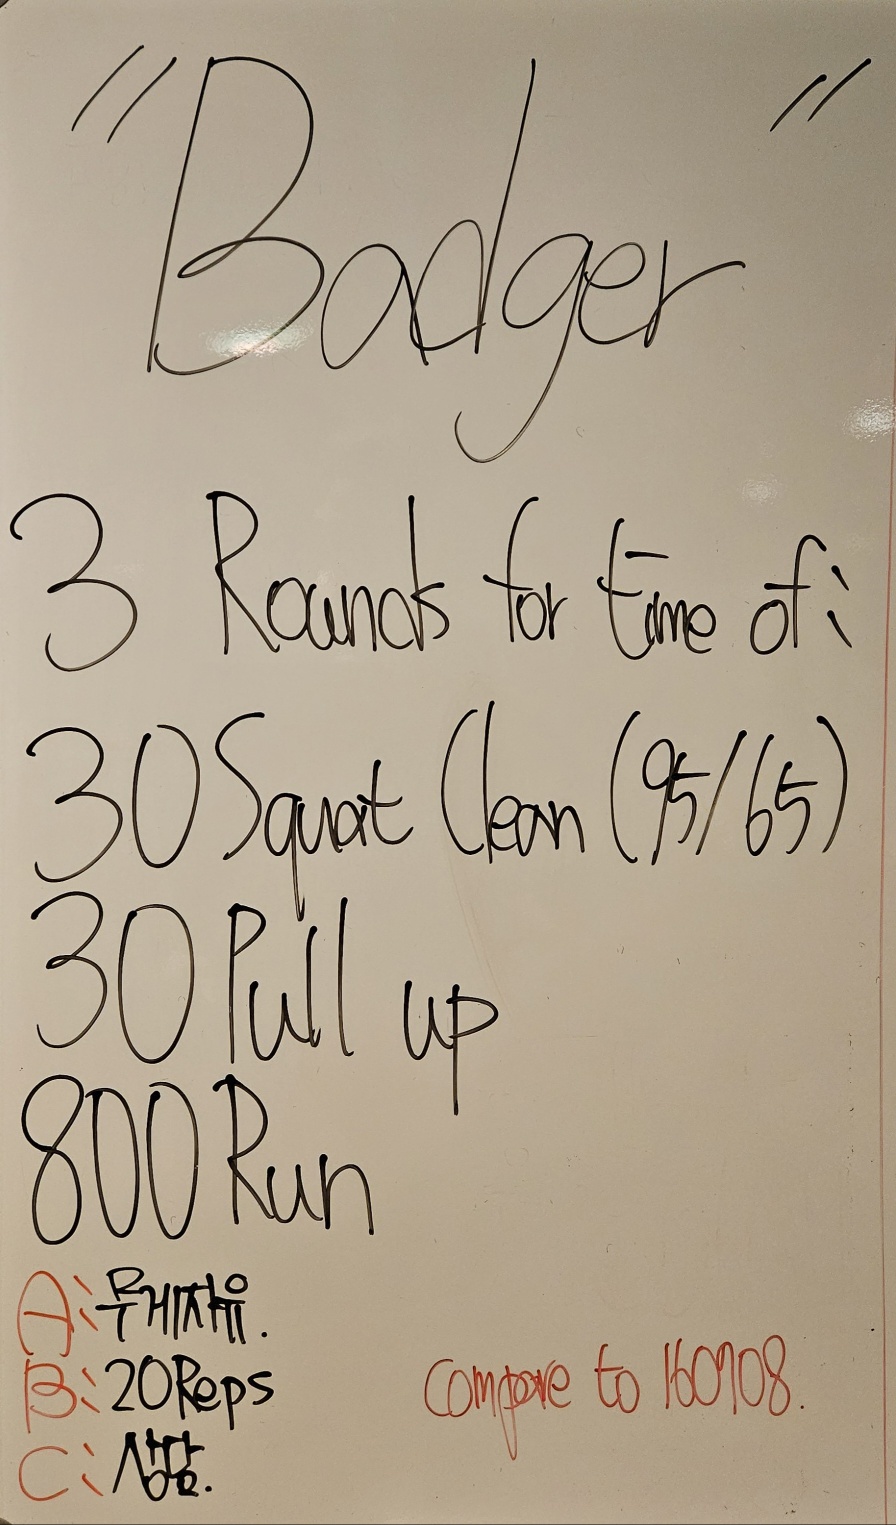 "Badger"
3 Rounds for time of:
30 Squat Clean (95/65)
30 Pull up
800 Run
A: 무게자유.
B: 20Reps
C: 상담.
compare to 160908.